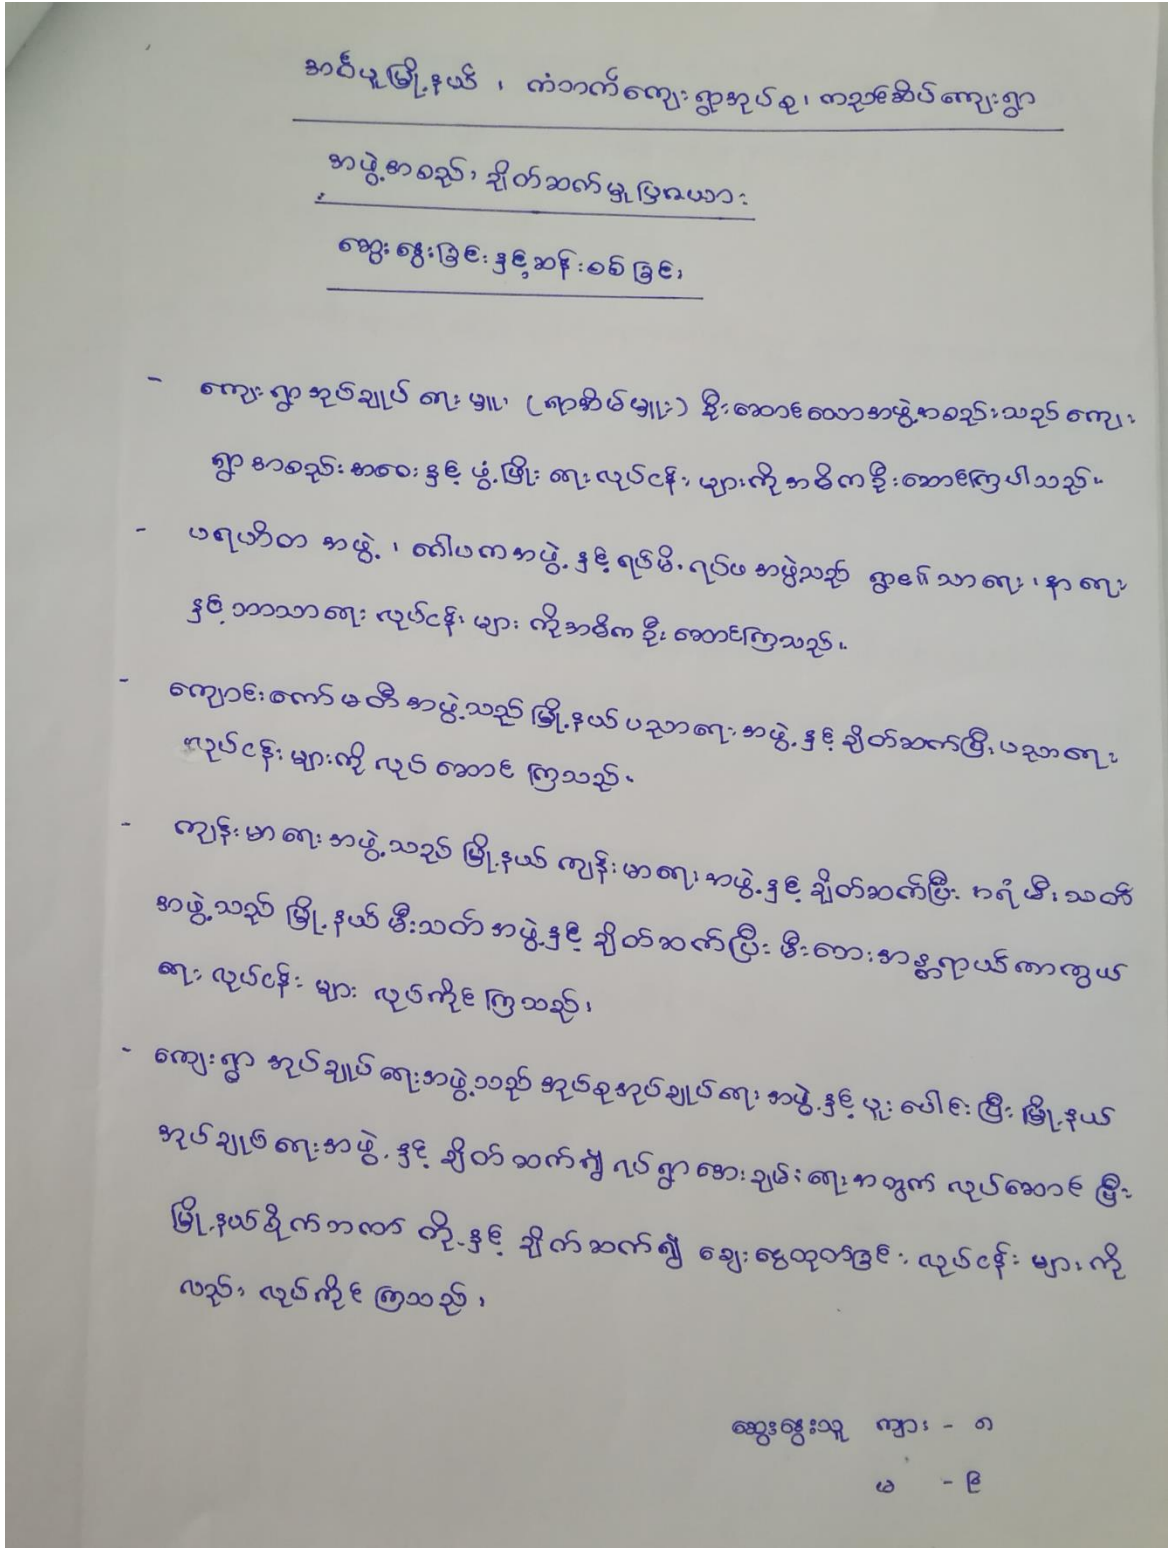 အင်္ဂပူမြို့နယ် ၊ ကံဘက်ကျေးရွာအုပ်စု၊ ကညင်ဆိပ်ကျေးရွာ
အဖွဲ့အစည်း ချိတ်ဆက်မှုပြဇယား
ဆွေးနွေးခြင်းနှင့်ဆန်းစစ်ခြင်း
- ကျေးရွာအုပ်ချုပ်ရေးမှူး (ရာအိမ်မှူး) ဦးဆောင်သောအဖွဲ့အစည်းသည် ကျေး
ရွာအစည်းအဝေးနှင့် ဖွံ့ဖြိုးရေးလုပ်ငန်းများကို အဓိကဦးဆောင်ကြပါသည်။
- ပရဟိတ အဖွဲ့ ၊ ဂေါပကအဖွဲ့ နှင့် ရပ်မိ၊ ရပ်ဖ အဖွဲ့သည် ရွာ၏ သာရေး ၊ နာရေး
နှင့် ဘာသာရေး လုပ်ငန်းများ ကို အဓိက ဦးဆောင်ကြသည်။
- ကျောင်းကော်မတီအဖွဲ့သည် မြို့နယ်ပညာရေးအဖွဲ့နှင့် ချိတ်ဆက်ပြီး ပညာရေး
လုပ်ငန်းများကို လုပ်ဆောင်ကြသည်။
- ကျန်းမာရေးအဖွဲ့သည် မြို့နယ် ကျန်းမာရေးအဖွဲ့နှင့် ချိတ်ဆက်ပြီး အရံမီးသတ်
အဖွဲ့သည် မြို့နယ်မီးသတ်အဖွဲ့နှင့် ချိတ်ဆက်ပြီး မီးဘေးအန္တရာယ်ကာကွယ်
ရေး လုပ်ငန်းများ လုပ်ကိုင်ကြသည်၊
- ကျေးရွာ အုပ်ချုပ်ရေးအဖွဲ့သည် အုပ်စုအုပ်ချုပ်ရေးအဖွဲ့နှင့် ပူးပေါင်းပြီး မြို့နယ်
အုပ်ချုပ်ရေးအဖွဲ့နှင့် ချိတ်ဆက်၍ ရပ်ရွာအေးချမ်းရေးအတွက် လုပ်ဆောင်ပြီး
မြို့နယ်စိုက်ဘဏ် တို့နှင့် ချိတ်ဆက်၍ ချေးငွေထုတ်ခြင်း လုပ်ငန်းများကို
လည်း လုပ်ကိုင်ကြသည်၊
ဆွေးနွေးသူ ကျား - ၈
မ - ၉